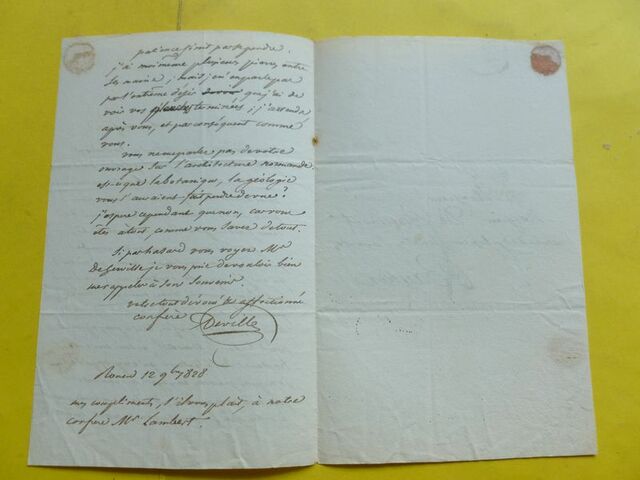 patience finit par se perdre.
j'ai moi même plusieurs pierres entre
les mains; mais j'en parle pas
par l'extrême desir que j'ai de
voir vos planches terminées; j'attendrai
après vous, et par conséquent comme
vous.
vous ne me parlez pas de votre
ouvrage sur l'architecture normande.
est-ce que la botanique, la géologie
vous l'auraient fait perdre de vue?
j'espere cependant que non, car vous
êtes à tout, comme vous savez de tout.
Si par hasard vous voyez Mr
De Gerville je vous prie de vouloir bien
me rappeler à son souvenir.
votre tout dévoué & affectionné
confrère Deville
Rouen 12 9bre 1828
mes compliments, s'il vous plait, à notre
confrère Mr Lambert.